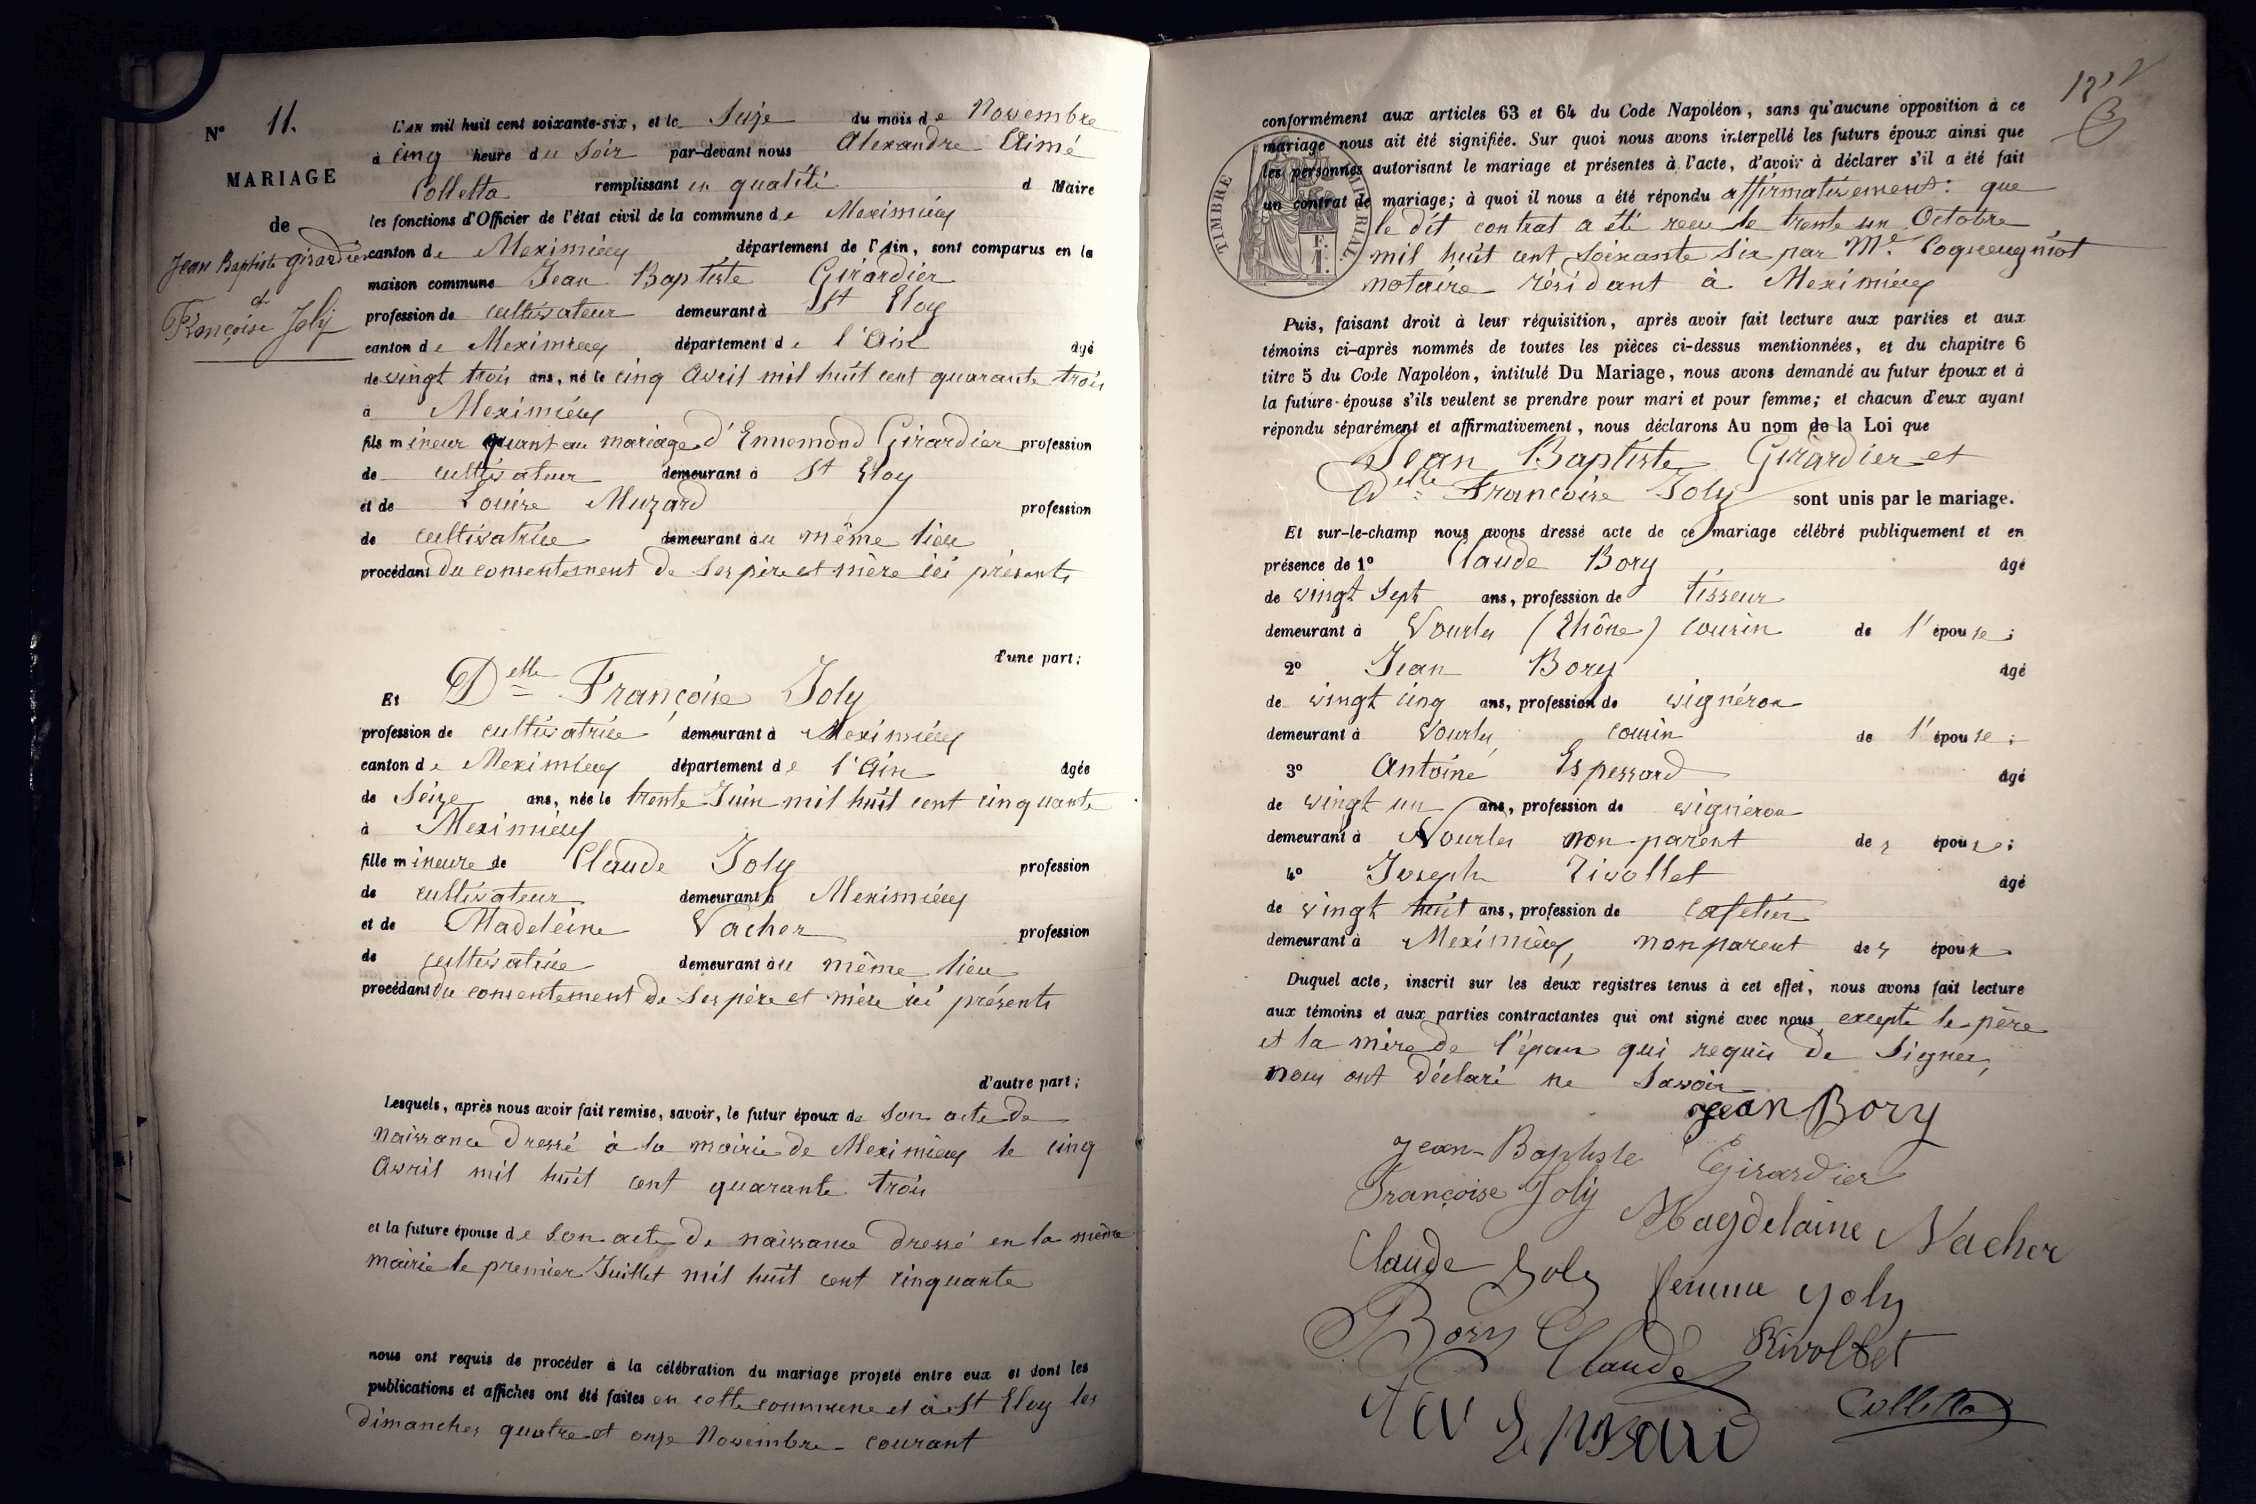 N° 11.
MARIAGE
de
Jean Baptiste Girardier
et
Françoise Joly
L'AN mil huit cent soixante-six, et le Seize du mois de Novembre
à cinq heure du Soir par-devant nous Alexandre Aimé
Colletta remplissant en qualité d Maire
les fonctions d'Officier de l'état civil de la commune de Meximieux
canton de Meximieux département de l'Ain, sont comparus en la
maison commune Jean Baptiste Girardier
profession de cultivateur demeurant à St Eloy
canton de Meximieux département de l'Ain âgé
de vingt trois ans, né le cinq Avril mil huit cent quarante trois
à Meximieux
fils mineur quant au mariage d'Ennemond Girardier profession
de cultivateur demeurant à St Eloy
et de Louise Muzard profession
de cultivatrice demeurant au même lieu
procédant du consentement de Ses père et mère ici présents
d'une part;
Et Delle Françoise Joly
profession de cultivatrice demeurant à Meximieux
canton de Meximieux département de l'Ain âgée
de Seize ans, née le trente Juin mil huit cent cinquante
à Meximieux
fille mineure de Claude Joly profession
de cultivateur demeurant à Meximieux
et de Madeleine Vacher profession
de cultivatrice demeurant au même lieu
procédant du consentement de Ses père et mère ici présents
d'autre part;
Lesquels, après nous avoir fait remise, savoir, le futur époux de Son acte de
naissance dressé à la mairie de Meximieux le cinq
Avril mil huit cent quarante trois
et la future épouse de Son acte de naissance dressé en la même
mairie le premier Juillet mil huit cent cinquante
nous ont requis de procéder à la célébration du mariage projeté entre eux et dont les
publications et affiches ont été faites en cette commune et à St Eloy les
dimanches quatre et onze Novembre courant
conformément aux articles 63 et 64 du Code Napoléon, sans qu'aucune opposition à ce
mariage nous ait été signifiée. Sur quoi nous avons interpellé les futurs époux ainsi que
les personnes autorisant le mariage et présentes à l'acte, d'avoir à déclarer s'il a été fait
un contrat de mariage; à quoi il nous a été répondu affirmativement: que
le dit contrat a été reçu le trente un Octobre
mil huit cent soixante six par Me Coqueugniot
notaire résidant à Meximieux
TIMBRE IMPÉRIAL
Puis, faisant droit à leur réquisition, après avoir fait lecture aux parties et aux
témoins ci-après nommés de toutes les pièces ci-dessus mentionnées, et du chapitre 6
titre 5 du Code Napoléon, intitulé Du Mariage, nous avons demandé au futur époux et à
la future épouse s'ils veulent se prendre pour mari et pour femme; et chacun d'eux ayant
répondu séparément et affirmativement, nous déclarons Au nom de la Loi que
Jean Baptiste Girardier et
Delle Françoise Joly sont unis par le mariage.
Et sur-le-champ nous avons dressé acte de ce mariage célébré publiquement et en
présence de 1° Claude Bory âgé
de vingt Sept ans, profession de tisseur
demeurant à Vourles (Rhône) cousin de l'épouse;
2° Jean Bory âgé
de vingt cinq ans, profession de vignéron
demeurant à Vourles, cousin de l'épouse;
3° Antoine Espessard âgé
de vingt un ans, profession de vignéron
demeurant à Vourles non parent des épouse;
4° Joseph Rivollet âgé
de vingt huit ans, profession de cafetier
demeurant à Meximieux, non parent des époux
Duquel acte, inscrit sur les deux registres tenus à cet effet, nous avons fait lecture
aux témoins et aux parties contractantes qui ont signé avec nous excepté le père
et la mère de l'époux qui requis de Signer,
nous ont déclaré ne Savoir
jean Bory
Jean-Baptiste Girardier
Françoise Joly Magdelaine Vacher
Claude Joly femme joly
Bory Claude Rivollet
Colletta